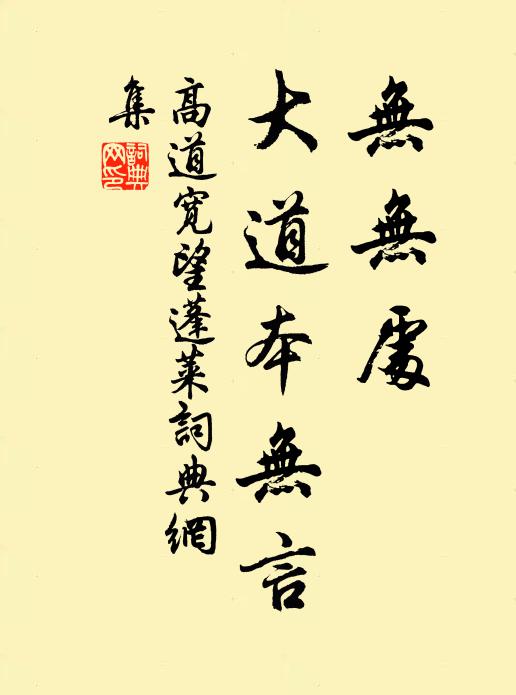 無無處
大道本無言
高道寬望蓬萊詞典網
集
詞典
网印